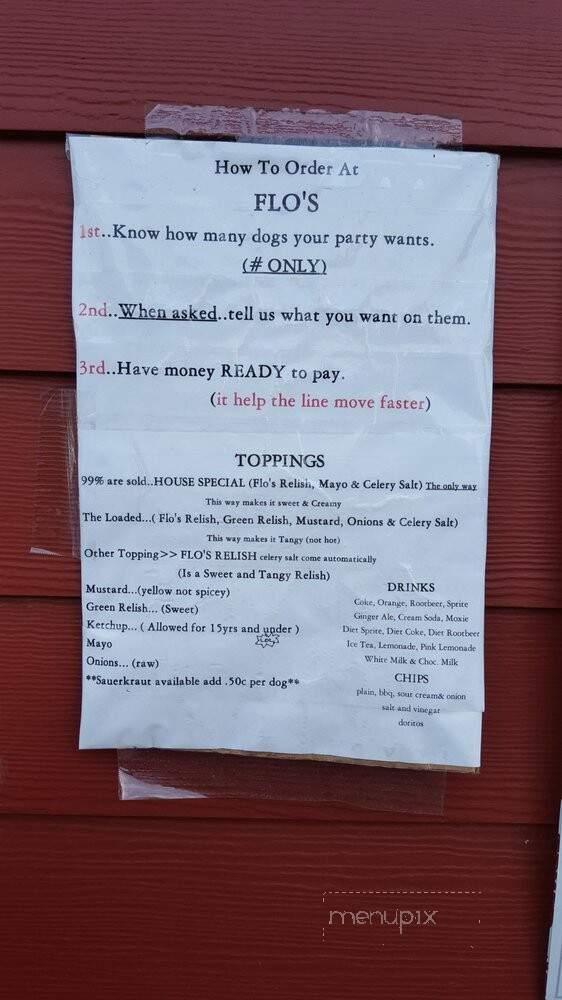 How To Order At
FLO'S
1st..Know how many dogs your party wants.
(# ONLY)
2nd..When asked..tell us what you want on them.
3rd..Have money READY to pay.
(it help the line move faster)
TOPPINGS
99% are sold..HOUSE SPECIAL (Flo's Relish, Mayo & Celery Salt) The only way
This way makes it sweet & Creamy
The Loaded...( Flo's Relish, Green Relish, Mustard, Onions & Celery Salt)
This way makes it Tangy (not hot)
Other Topping>> FLO'S RELISH celery salt come automatically
(Is a Sweet and Tangy Relish)
Mustard...(yellow not spicey)
Green Relish... (Sweet)
Ketchup... ( Allowed for 15yrs and under )
Mayo
Onions... (raw)
**Sauerkraut available add .50c per dog**
DRINKS
Coke, Orange, Rootbeer, Sprite
Ginger Ale, Cream Soda, Moxie
Diet Sprite, Diet Coke, Diet Rootbeer
Ice Tea, Lemonade, Pink Lemonade
White Milk & Choc. Milk
CHIPS
plain, bbq, sour cream& onion
salt and vinegar
doritos
menupix